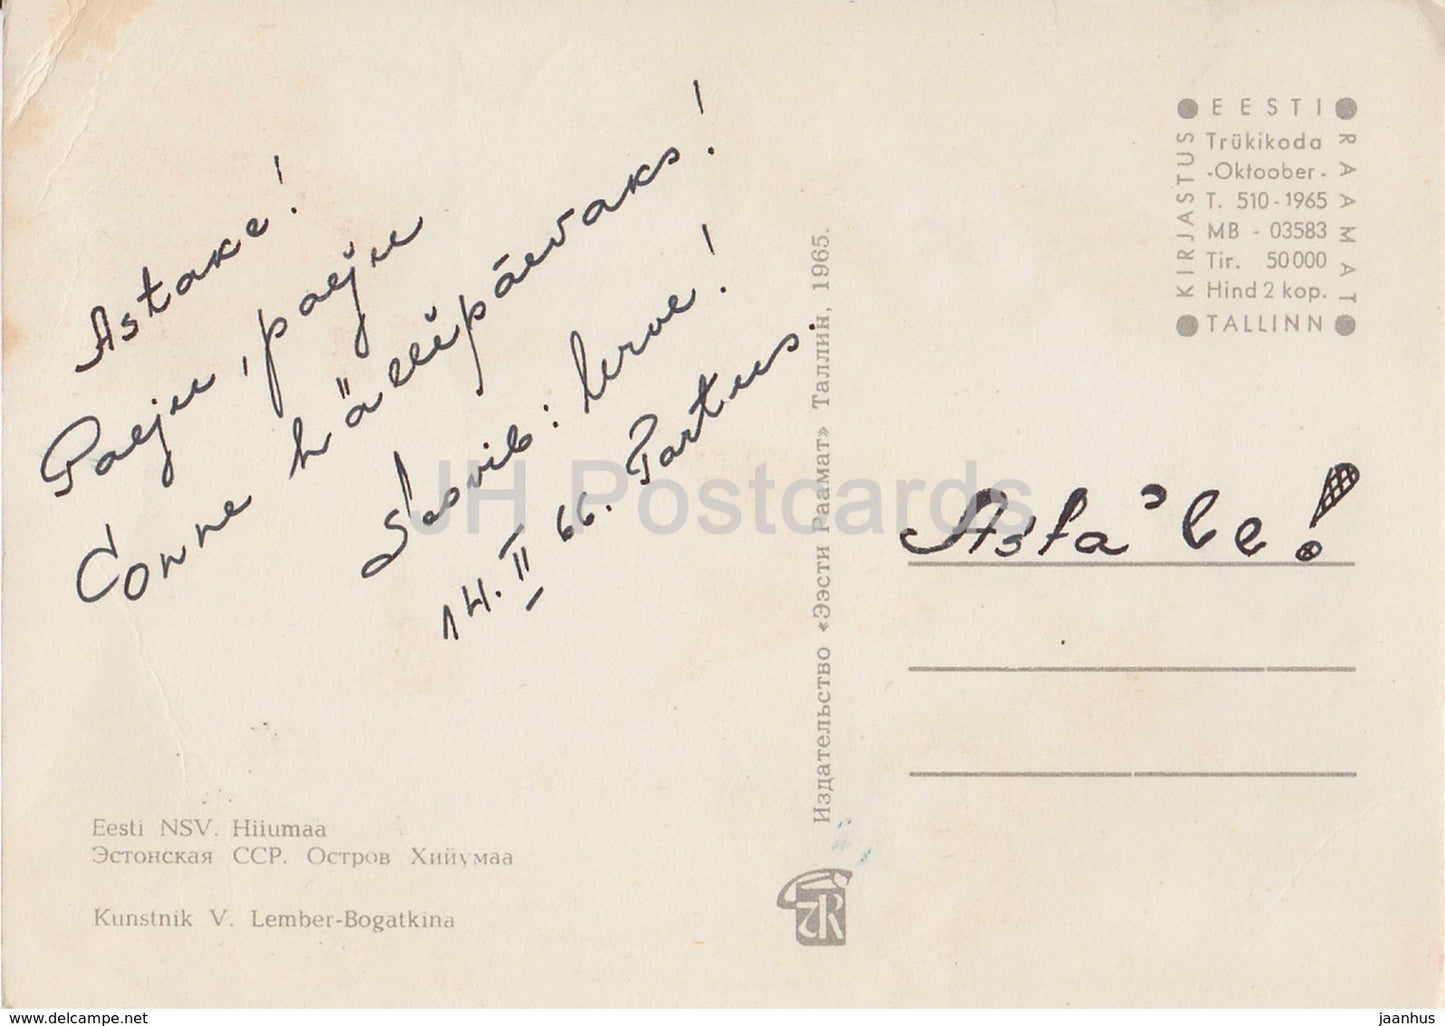 Astake!
Palju, palju
õnne hällipäevaks!
Soovib:
14. II 66. Tartus.
Asta'le!
EESTI
RAAMAT
KIRJASTUS
Trükikoda
-Oktoober-
T. 510-1965
MB - 03583
Tir. 50000
Hind 2 kop.
TALLINN
Издательство «Ээсти Раамат» Таллин, 1965.
Eesti NSV. Hiiumaa
Эстонская ССР. Остров Хийумаа
Kunstnik V. Lember-Bogatkina
JH Postcards
www.delcampe.net
jaanhus